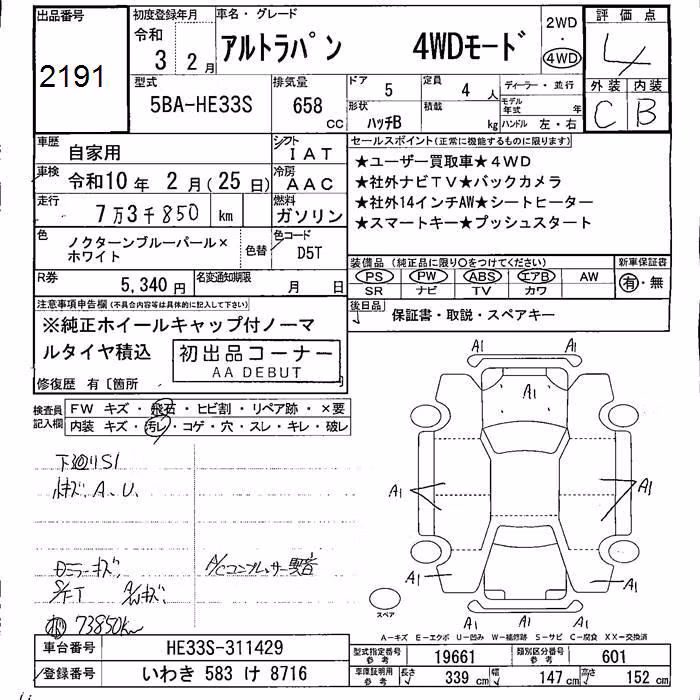 出品番号
2191
初度登録年月
令和
3 2月
車名・グレード
アルトラパン 4WDモード
2WD
4WD
評価点
4
外装 内装
C B
型式
5BA-HE33S
排気量
658 CC
ドア 5
定員 4 人
形状 ハッチB
積載 kg
ディーラー・並行
モデル年式 年
ハンドル 左・右
車歴 自家用
シフト IAT
車検 令和10年 2月(25日)
冷房 AAC
走行 7万3千850 km
燃料 ガソリン
色 ノクターンブルーパール×
ホワイト
色替
色コード D5T
R券 5,340円
名変通知期限 月 日
セールスポイント(正常に機能するものに限ります)
★ユーザー買取車★4WD
★社外ナビTV★バックカメラ
★社外14インチAW★シートヒーター
★スマートキー★プッシュスタート
装備品(純正品に限り○をつけてください)
PS PW ABS エアB AW
SR ナビ TV カワ
新車保証書
有・無
後日品
保証書・取説・スペアキー
注意事項申告欄(不具合内容等は具体的に記入して下さい)
※純正ホイールキャップ付ノーマ
ルタイヤ積込
初出品コーナー
AA DEBUT
修復歴 有〔箇所
検査員
記入欄
FW キズ・飛石・ヒビ割・リペア跡・×要
内装 キズ・汚レ・コゲ・穴・スレ・キレ・破レ
下廻りS1
小キズ.A.U.
Dミラーキズ.
A/Cコンプレッサー異音
S/F.T A/Wキズ.
73850km
A1 A1
A1
A1 A1
A1 A1
A1 A1
スペア
A-キズ E-エクボ U-凹み W-補修跡 S-サビ C-腐食 XX-交換済
車台番号 HE33S-311429
登録番号 いわき 583 け 8716
型式指定番号
参考
19661
類別区分番号
参考
601
車庫証明用
参考
長さ 339 cm
幅 147 cm
高さ 152 cm